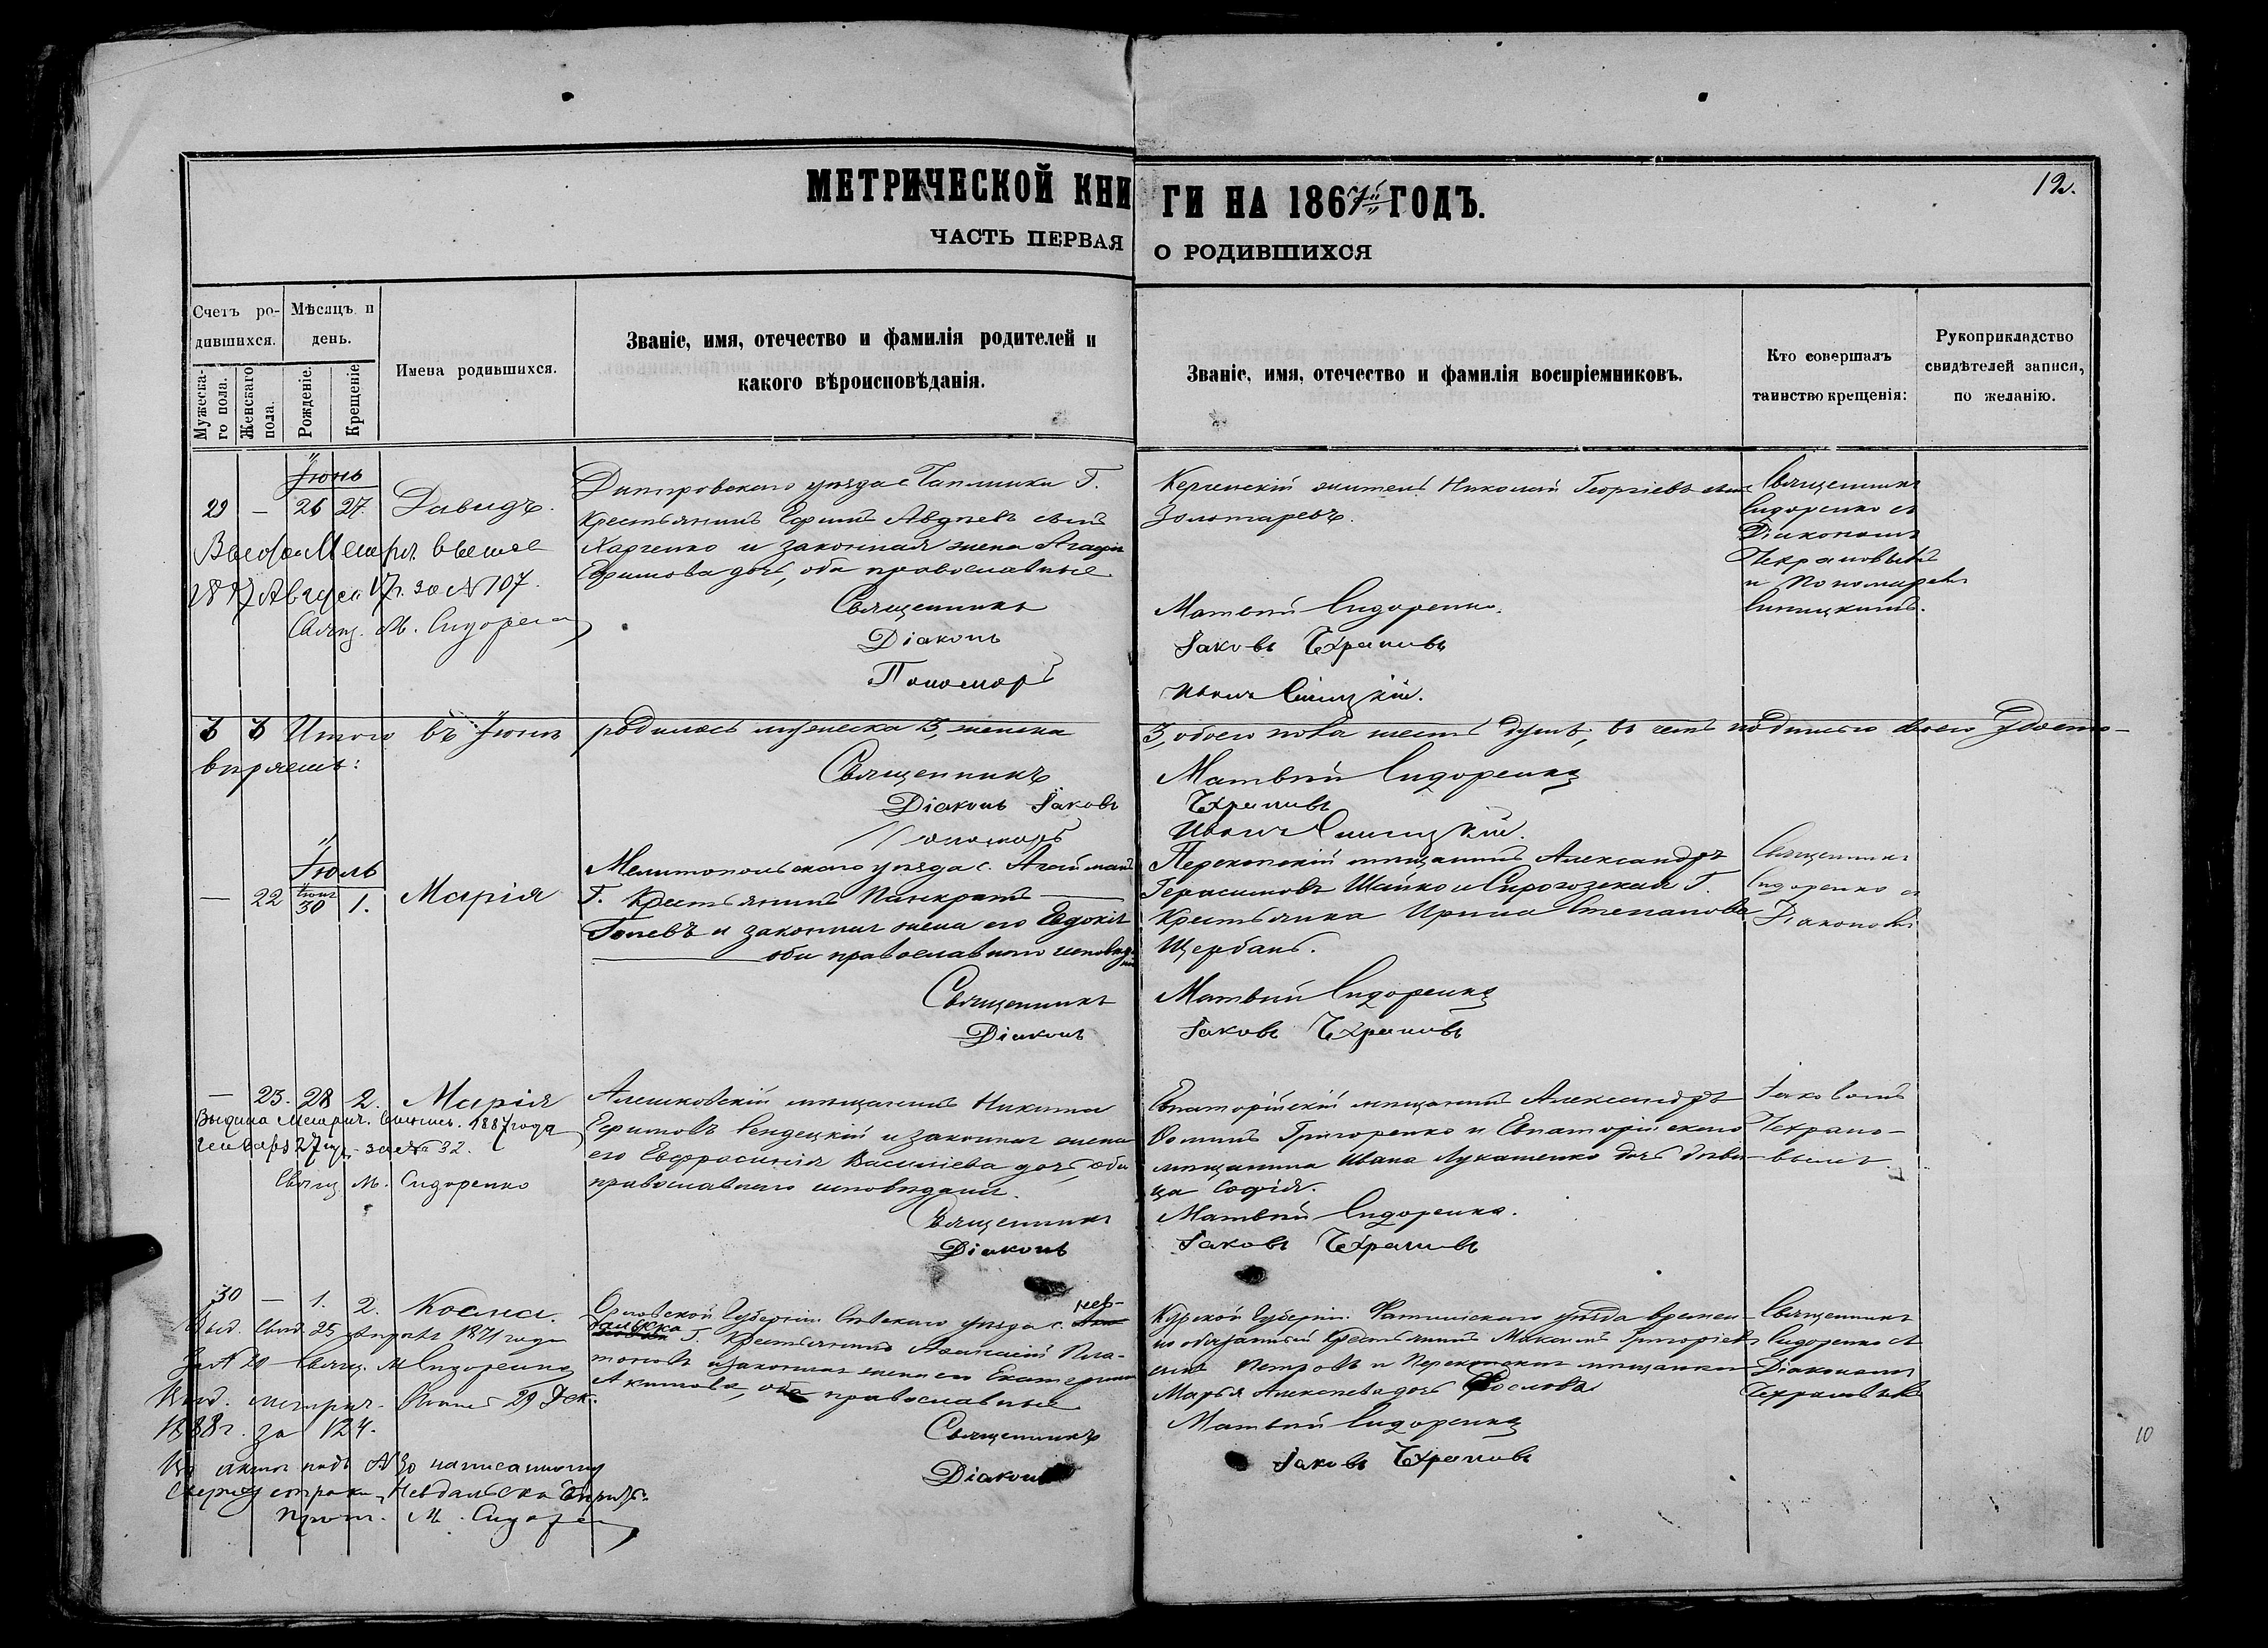 МЕТРИЧЕСКОЙ КНИГИ НА 1867й ГОДЪ.
12.
ЧАСТЬ ПЕРВАЯ О РОДИВШИХСЯ
Счетъ родившихся.
Мужескаго пола.
Женскаго пола.
Мѣсяцъ и день.
Рожденіе.
Крещеніе.
Имена родившихся.
Званіе, имя, отечество и фамилія родителей и какого вѣроисповѣданія.
Званіе, имя, отечество и фамилія воспріемниковъ.
Кто совершалъ таинство крещенія:
Рукоприкладство свидѣтелей записи, по желанію.
Іюнь
29 — 26 27. Давидъ.
Днѣпровскаго уѣзда с. Г.
Крестьянинъ Ефимъ Авдѣевъ сынъ
Харченко и законная жена Агафія
Ефимова дочь, оба православные
Керченскій житель Николай Георгіевъ сынъ
Золотаревъ.
Священникъ
Сидоренко съ
Діакономъ
Чехрановымъ
и Пономаремъ
Синицкимъ.
за № 107.
Свящ. М. Сидоренко
Священникъ Матвѣй Сидоренко.
Діаконъ Іаковъ Чехрановъ
Пономарь Иванъ Синицкій.
3 3 Итого въ Іюнѣ родилось мужеска 3, женска 3, обоего пола шесть душъ, въ чемъ подписью своею удосто-
вѣряемъ:
Священникъ Матвѣй Сидоренко
Діаконъ Іаковъ Чехрановъ
Пономарь Иванъ Синицкій.
Іюль
— 22 Іюня 30 1. Марія
Мелитопольскаго уѣзда с. Агайманъ
Г. Крестьянинъ Панкратъ
и законная жена его Евдокія
оба православнаго исповѣданія
Перекопскій мѣщанинъ Александръ
Герасимовъ Шайко и Сирогозская Г.
Крестьянка Ирина Степанова
Щербань.
Священникъ
Сидоренко съ
Діакономъ
Священникъ Матвѣй Сидоренко
Діаконъ Іаковъ Чехрановъ
— 23. 28 2. Марія
Алешковскій мѣщанинъ Никита
Ефимовъ Сендецкій и законная жена
его Евфросинія Василіева дочь, оба
православнаго исповѣданія.
Евпаторійскій мѣщанинъ Александръ
Ѳоминъ Григоренко и Евпаторійскаго
мѣщанина Ивана Лукашенко дочь дѣви-
ца Софія.
Іаковомъ
Чехрано-
вымъ
Выдана Метрич. выпись. 1887 года
Генваря 27 дня за № 32.
Свящ. М. Сидоренко
Священникъ Матвѣй Сидоренко.
Діаконъ Іаковъ Чехрановъ
30 — 1. 2. Косма.
Орловской Губерніи Сѣвскаго уѣзда с. Нев-
дальска Г. Крестьянинъ Пла-
тоновъ и законная жена его Екатерина
Акимова, оба православные
Курской Губерніи Фатежскаго уѣзда времен-
но обязанный Крестьянинъ Максимъ Григоріевъ
сынъ Петровъ и Перекопская мѣщанка
Марья Алексѣева дочь
Священникъ
Сидоренко съ
Діакономъ
Чехрановымъ
Выд. свид. 25 Апрѣля 1871 года
За № 20 Свящ. М Сидоренко
Выд. метрич. 29 Дек.
1888 г. за 124.
Въ актѣ подъ № 30 написанному
сверху строки „Невдальска" вѣрить.
Прот. М. Сидоренко
Священникъ Матвѣй Сидоренко
Діаконъ Іаковъ Чехрановъ
10